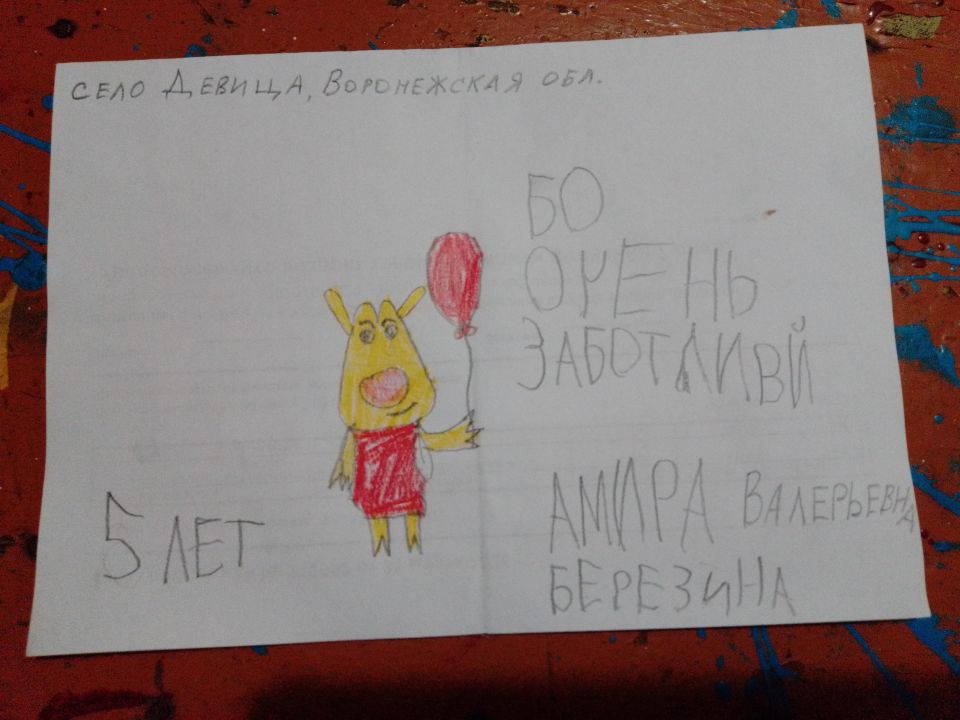 СЕЛО ДЕВИЦА, ВОРОНЕЖСКАЯ ОБЛ.
БО
ОЧЕНЬ
ЗАБОТЛИВЙ
АМИРА ВАЛЕРЬЕВНА
БЕРЕЗИНА
5 ЛЕТ